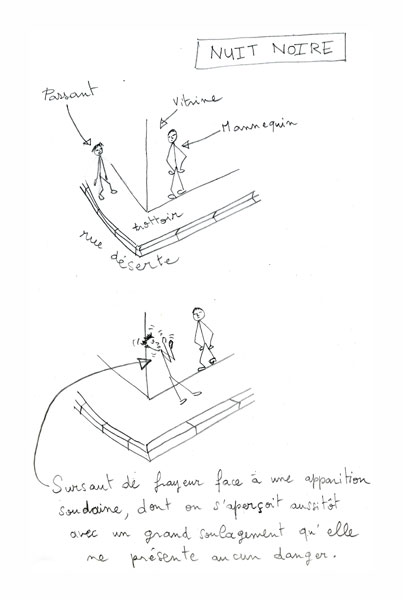 NUIT NOIRE
Passant
Vitrine
Mannequin
trottoir
rue déserte
Sursaut de frayeur face à une apparition
soudaine, dont on s'aperçoit aussitôt
avec un grand soulagement qu'elle
ne présente aucun danger.